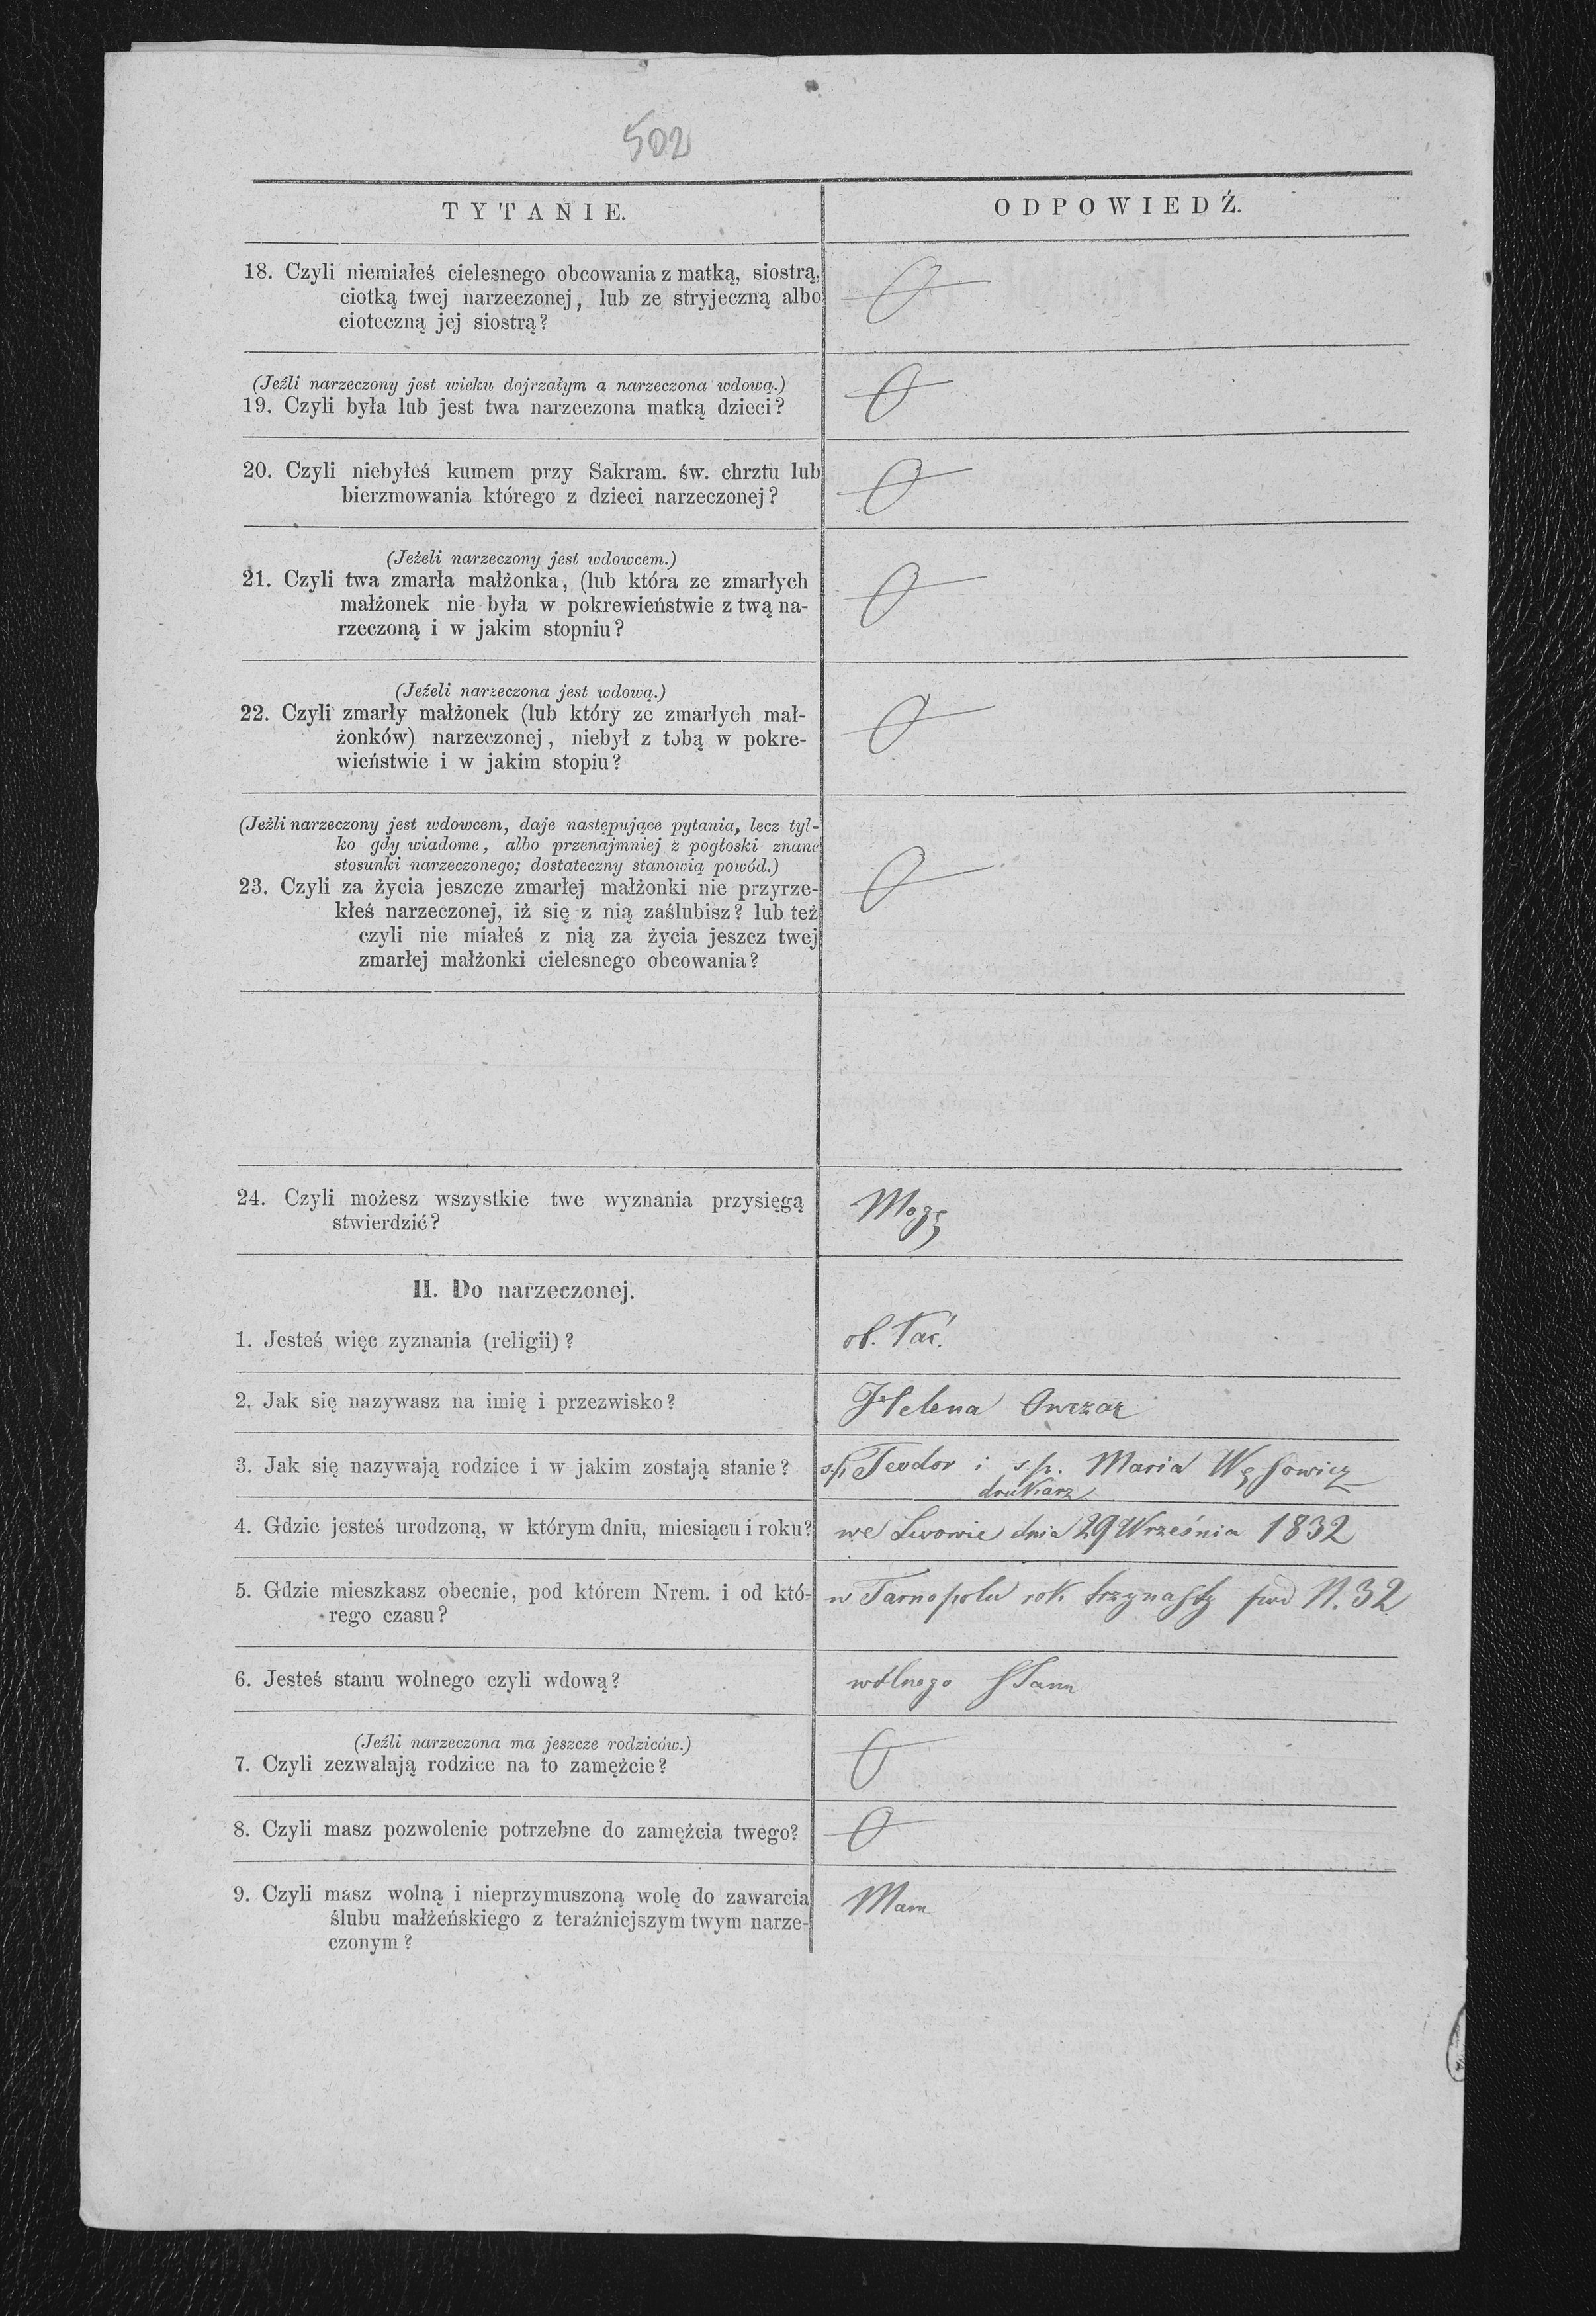 502
TYTANIE.
ODPOWIEDŹ.
18. Czyli niemiałeś cielesnego obcowania z matką, siostrą,
ciotką twej narzeczonej, lub ze stryjeczną albo
cioteczną jej siostrą?
(Jeźli narzeczony jest wieku dojrzałym a narzeczona wdową.)
19. Czyli była lub jest twa narzeczona matką dzieci?
20. Czyli niebyłeś kumem przy Sakram. św. chrztu lub
bierzmowania którego z dzieci narzeczonej?
(Jeżeli narzeczony jest wdowcem.)
21. Czyli twa zmarła małżonka, (lub która ze zmarłych
małżonek nie była w pokrewieństwie z twą na-
rzeczoną i w jakim stopniu?
(Jeżeli narzeczona jest wdową.)
22. Czyli zmarły małżonek (lub który ze zmarłych mał-
żonków) narzeczonej, niebył z tobą w pokre-
wieństwie i w jakim stopiu?
(Jeżli narzeczony jest wdowcem, daje następujące pytania, lecz tyl-
ko gdy wiadome, albo przenajmniej z pogłoski znane
stosunki narzeczonego; dostateczny stanowią powód.)
23. Czyli za życia jeszcze zmarłej małżonki nie przyrze-
kłeś narzeczonej, iż się z nią zaślubisz? lub też
czyli nie miałeś z nią za życia jeszcz twej
zmarłej małżonki cielesnego obcowania?
24. Czyli możesz wszystkie twe wyznania przysięgą
stwierdzić?
Mogę
II. Do narzeczonej.
1. Jesteś więc zyznania (religii)?
ob. łać.
2. Jak się nazywasz na imię i przezwisko?
Helena Owczar
3. Jak się nazywają rodzice i w jakim zostają stanie?
sp. Teodor i sp. Maria Węsowicz
drukarz
4. Gdzie jesteś urodzoną, w którym dniu, miesiącu i roku?
we Lwowie dnia 29 Września 1832
5. Gdzie mieszkasz obecnie, pod którem Nrem. i od któ-
rego czasu?
w Tarnopolu rok trzynasty pod N. 32
6. Jesteś stanu wolnego czyli wdową?
wólnego stanu
(Jeźli narzeczona ma jeszcze rodziców.)
7. Czyli zezwalają rodzice na to zamężcie?
8. Czyli masz pozwolenie potrzebne do zamężcia twego?
9. Czyli masz wolną i nieprzymuszoną wolę do zawarcia
ślubu małżeńskiego z teraźniejszym twym narze-
czonym?
Mam